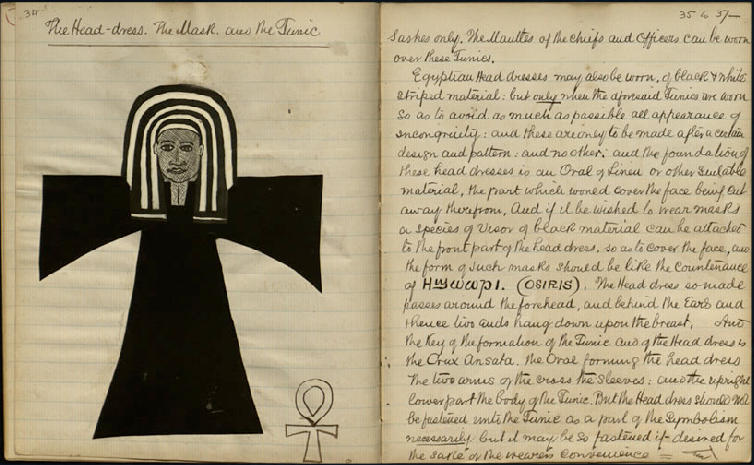 34
The Head-dress. The Mask. and the Tunic
35 to 37
Sashes only. The Mantles of the Chiefs and Officers can be worn
over these Tunics.
Egyptian Head dresses may also be worn, of black & white
striped material: but only when the aforesaid Tunics are worn
So as to avoid as much as possible all appearance of
incongruity: and these are only to be made after a certain
design and pattern: and no other; and the foundation of
these head dresses is an Oval of Linen or other suitable
material, the part which would cover the face being cut
away therefrom, And if it be wished to wear masks
a species of Visor of black material can be attached
to the front part of the head dress. so as to cover the face, and
the form of such masks should be like the Countenance
of (OSIRIS). The Head dress so made
passes around the forehead, and behind the Ears and
thence two ends hang down upon the breast. And
the Key of the formation of the Tunic and of the Head dress is
the Crux Ansata. the Oval forming the head dress
the two arms of the cross the Sleeves: and the upright
lower part the body of the Tunic. But the Head dress should not
be fastened unto the Tunic as a part of the Symbolism
necessarily but it may be so fastened if desired for
the sake of the wearer's convenience